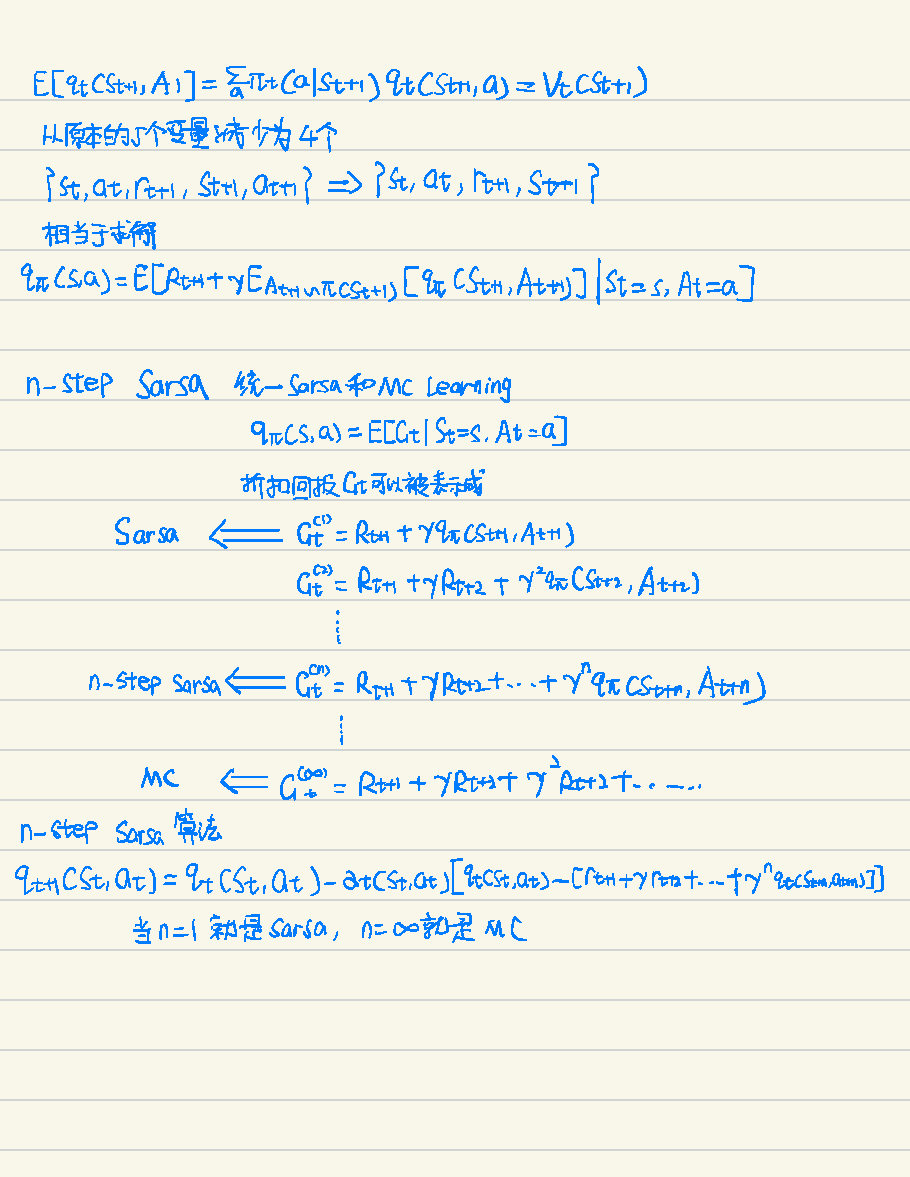 E[q_t(s_{t+1}, A)] = Σ_a π_t(a|s_{t+1}) q_t(s_{t+1}, a) = V_t(s_{t+1})
从原本的5个变量减少为4个
{s_t, a_t, r_{t+1}, s_{t+1}, a_{t+1}} ⇒ {s_t, a_t, r_{t+1}, s_{t+1}}
相当于求解
q_π(s,a) = E[R_{t+1} + γE_{A_{t+1}∼π(S_{t+1})}[q_π(S_{t+1}, A_{t+1})] | S_t = s, A_t = a]
n-step Sarsa 统一Sarsa和MC Learning
q_π(s,a) = E[G_t | S_t = s, A_t = a]
折扣回报G_t可以被表示成
Sarsa ⇐ G_t^{(1)} = R_{t+1} + γq_π(S_{t+1}, A_{t+1})
G_t^{(2)} = R_{t+1} + γR_{t+2} + γ^2 q_π(S_{t+2}, A_{t+2})
⋮
n-step Sarsa ⇐ G_t^{(n)} = R_{t+1} + γR_{t+2} + ... + γ^n q_π(S_{t+n}, A_{t+n})
⋮
MC ⇐ G_t^{(∞)} = R_{t+1} + γR_{t+2} + γ^2 R_{t+2} + ......
n-step Sarsa 算法
q_{t+1}(s_t, a_t) = q_t(s_t, a_t) - α_t(s_t, a_t)[q_t(s_t, a_t) - [r_{t+1} + γr_{t+2} + ... + γ^n q_t(s_{t+n}, a_{t+n})]]
当n=1就是Sarsa, n=∞就是MC